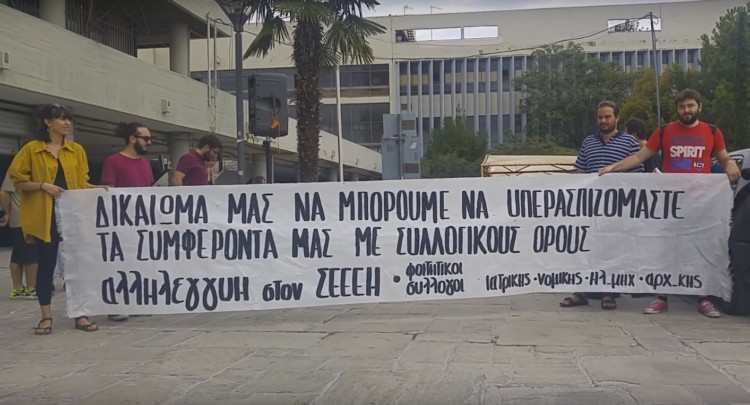 ΔΙΚΑΙΩΜΑ ΜΑΣ ΝΑ ΜΠΟΡΟΥΜΕ ΝΑ ΥΠΕΡΑΣΠΙΖΟΜΑΣΤΕ
ΤΑ ΣΥΜΦΕΡΟΝΤΑ ΜΑΣ ΜΕ ΣΥΛΛΟΓΙΚΟΥΣ ΟΡΟΥΣ
αλληλεγγυη στον ΣΕΕΕΗ • φοιτητικοι συλλογοι Ιατρικης • νομικης • Ηλ_μηχ • αρχ_κης
SPIRIT